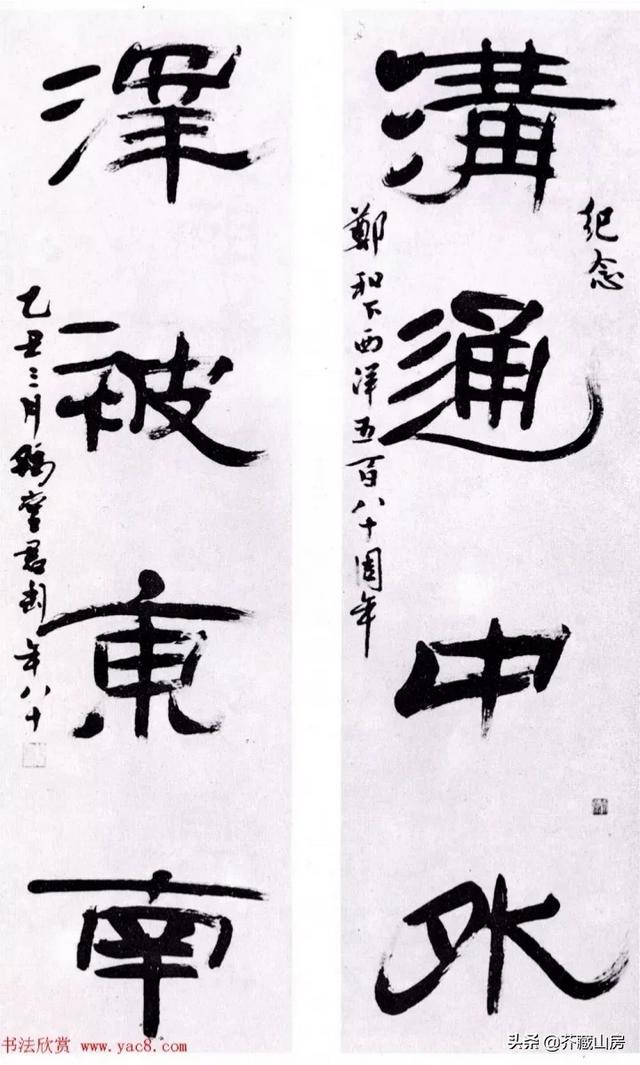 紀念
溝通中外
鄭和下西洋五百八十周年
澤被東南
乙丑三月豫堂君匋年八十
书法欣赏 www.yac8.com
头条 @芥藏山房